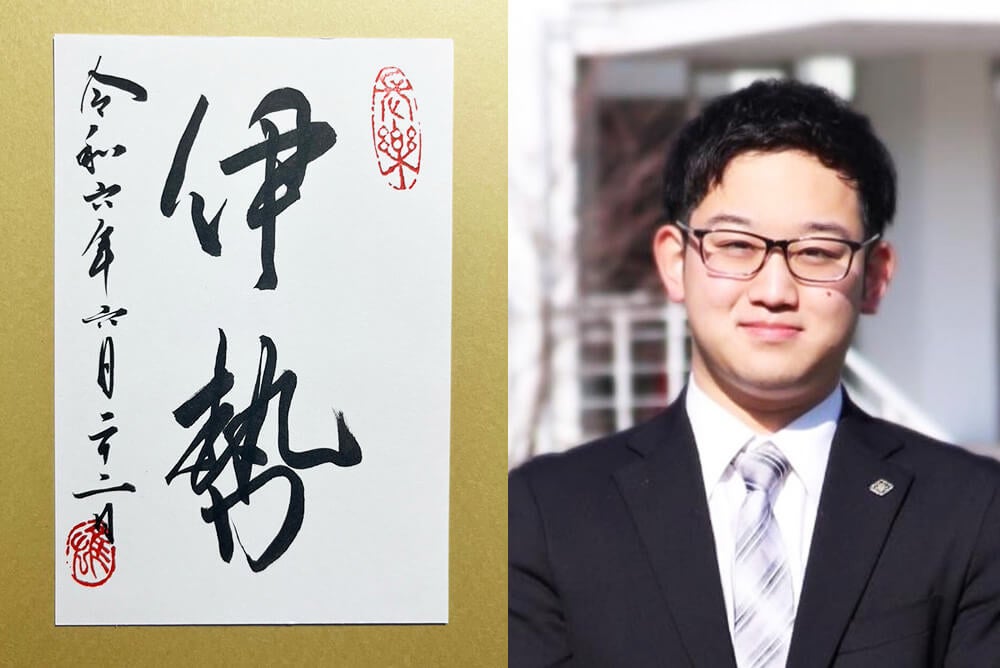 樂
伊勢
令和六年六月二十二日